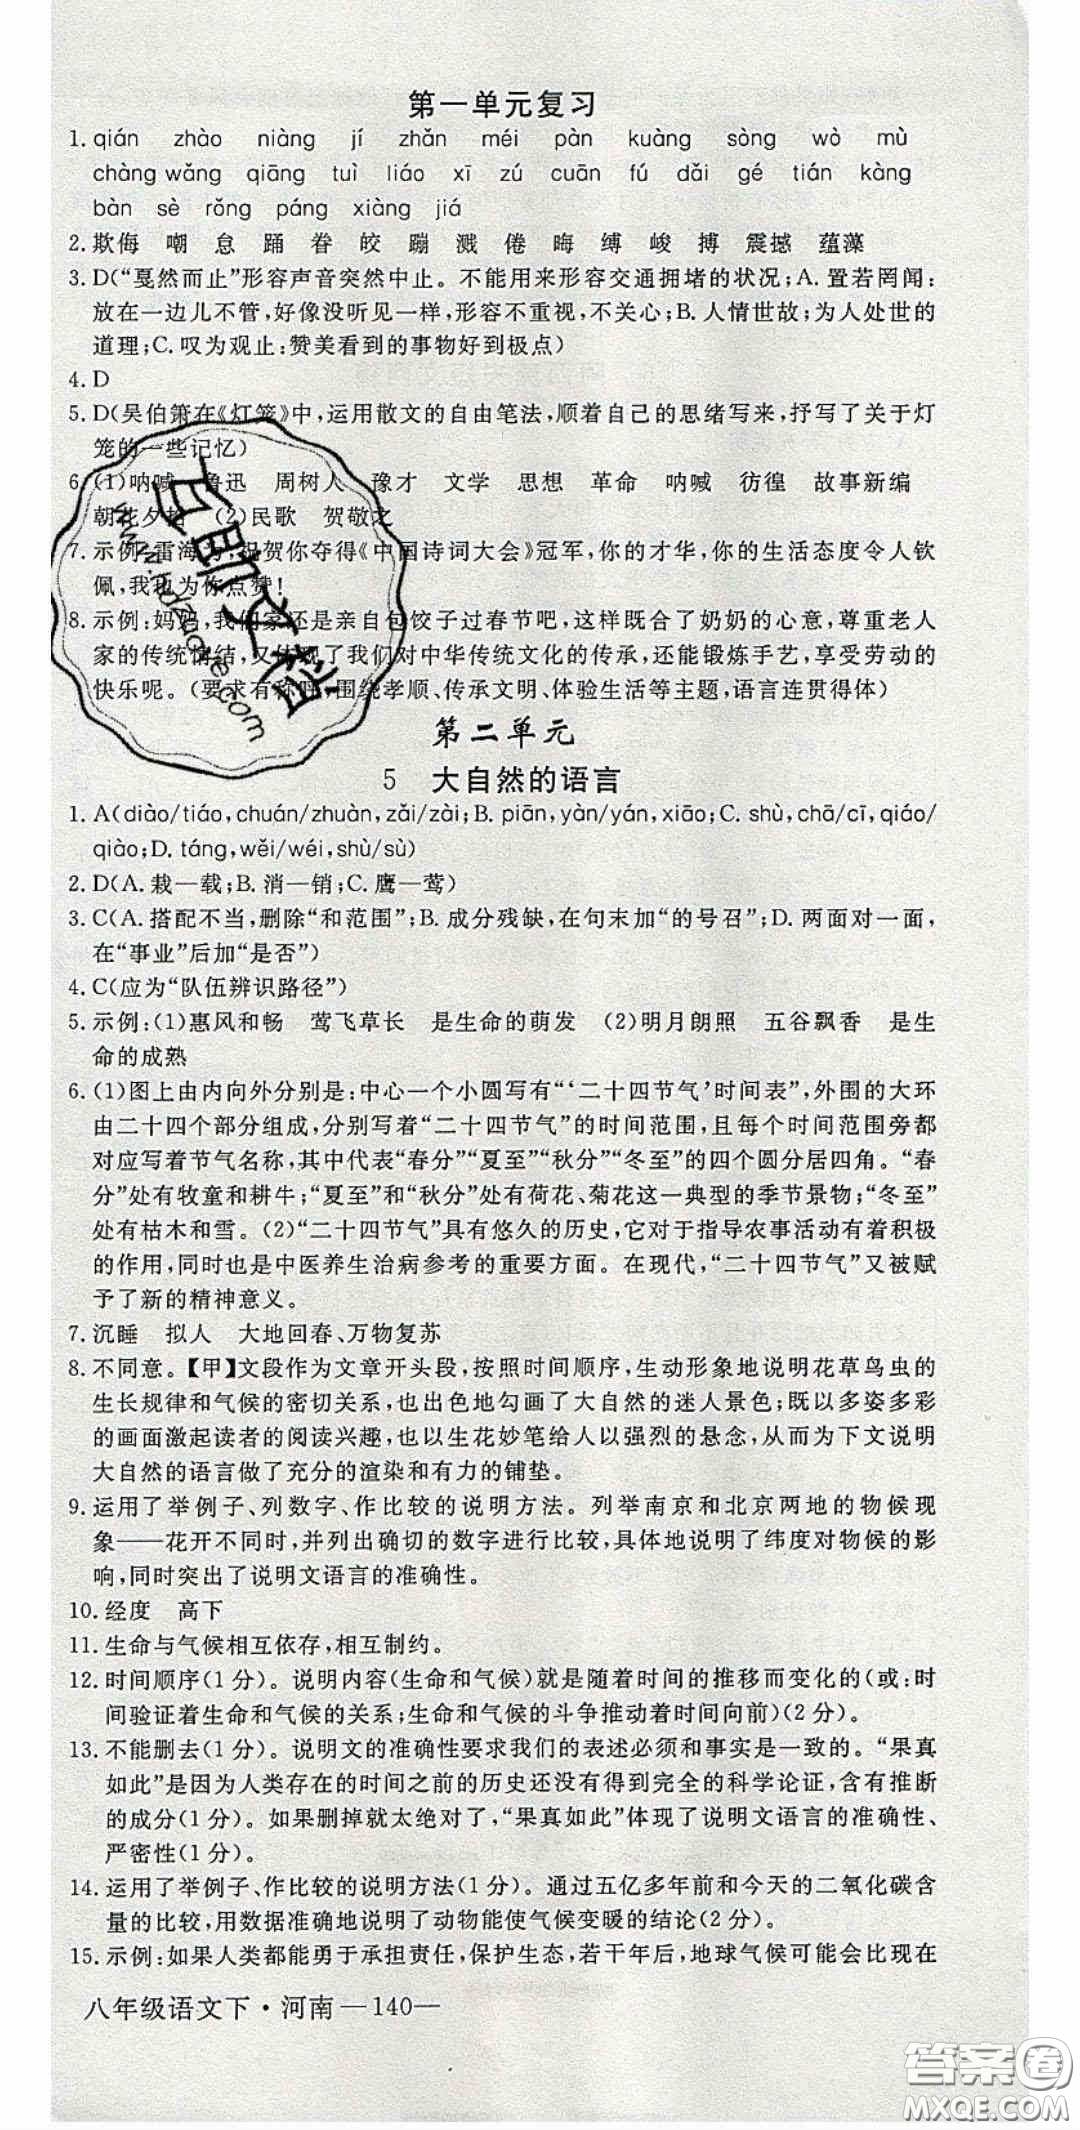 第一单元复习
1. qián zhào niàng jí zhǎn méi pàn kuàng sòng wò mù
chàng wǎng qiāng tuì liáo xī zú cuān fú dǎi gé tián kàng
bàn sè rǒng páng xiàng jiá
2. 欺侮 嘲 怠 踊 眷 皎 蹦 溅 倦 晦 缚 峻 搏 震撼 蕴藻
3. D(“戛然而止”形容声音突然中止。不能用来形容交通拥堵的状况;A. 置若罔闻:
放在一边儿不管,好像没听见一样,形容不重视,不关心;B. 人情世故:为人处世的
道理;C. 叹为观止:赞美看到的事物好到极点)
4. D
5. D(吴伯箫在《灯笼》中,运用散文的自由笔法,顺着自己的思绪写来,抒写了关于灯
笼的一些记忆)
6. (1)呐喊 鲁迅 周树人 豫才 文学 思想 革命 呐喊 彷徨 故事新编
朝花夕拾 (2)民歌 贺敬之
7. 示例:雷海为:祝贺你夺得《中国诗词大会》冠军,你的才华,你的生活态度令人钦
佩,我也为你点赞!
8. 示例:妈妈,我们家还是亲自包饺子过春节吧,这样既合了奶奶的心意,尊重老人
家的传统情结,又体现了我们对中华传统文化的传承,还能锻炼手艺,享受劳动的
快乐呢。(要求有称呼,围绕孝顺、传承文明、体验生活等主题,语言连贯得体)
第二单元
5 大自然的语言
1. A(diào/tiáo,chuán/zhuàn,zǎi/zài;B. piān,yàn/yán,xiāo;C. shù,chā/cī,qiáo/
qiào;D. táng,wěi/wéi,shù/sù)
2. D(A. 栽—载;B. 消—销;C. 鹰—莺)
3. C(A. 搭配不当,删除“和范围”;B. 成分残缺,在句末加“的号召”;D. 两面对一面,
在“事业”后加“是否”)
4. C(应为“队伍辨识路径”)
5. 示例:(1)惠风和畅 莺飞草长 是生命的萌发 (2)明月朗照 五谷飘香 是生
命的成熟
6. (1)图上由内向外分别是:中心一个小圆写有“‘二十四节气’时间表”,外围的大环
由二十四个部分组成,分别写着“二十四节气”的时间范围,且每个时间范围旁都
对应写着节气名称,其中代表“春分”“夏至”“秋分”“冬至”的四个圆分居四角。“春
分”处有牧童和耕牛;“夏至”和“秋分”处有荷花、菊花这一典型的季节景物;“冬至”
处有枯木和雪。(2)“二十四节气”具有悠久的历史,它对于指导农事活动有着积极
的作用,同时也是中医养生治病参考的重要方面。在现代,“二十四节气”又被赋
予了新的精神意义。
7. 沉睡 拟人 大地回春、万物复苏
8. 不同意。【甲】文段作为文章开头段,按照时间顺序,生动形象地说明花草鸟虫的
生长规律和气候的密切关系,出色地勾画了大自然的迷人景色;既以多姿多彩
的画面激起读者的阅读兴趣,也以生花妙笔给人以强烈的悬念,从而为下文说明
大自然的语言做了充分的渲染和有力的铺垫。
9. 运用了举例子、列数字、作比较的说明方法。列举南京和北京两地的物候现
象——花开不同时,并列出确切的数字进行比较,具体地说明了纬度对物候的影
响,同时突出了说明文语言的准确性。
10. 经度 高下
11. 生命与气候相互依存,相互制约。
12. 时间顺序(1 分)。说明内容(生命和气候)就是随着时间的推移而变化的(或:时
间验证着生命和气候的关系;生命和气候的斗争推动着时间向前)(2 分)。
13. 不能删去(1 分)。说明文的准确性要求我们的表述必须和事实是一致的。“果真
如此”是因为人类存在的时间之前的历史还没有得到完全的科学论证,含有推断
的成分(1 分)。如果删掉就太绝对了,“果真如此”体现了说明文语言的准确性、
严密性(1 分)。
14. 运用了举例子、作比较的说明方法(1 分)。通过五亿多年前和今天的二氧化碳含
量的比较,用数据准确地说明了动物能使气候变暖的结论(2 分)。
15. 示例:如果人类都能勇于承担责任,保护生态,若干年后,地球气候可能会比现在
八年级语文下·河南—140—
答案圈
MXQE.COM